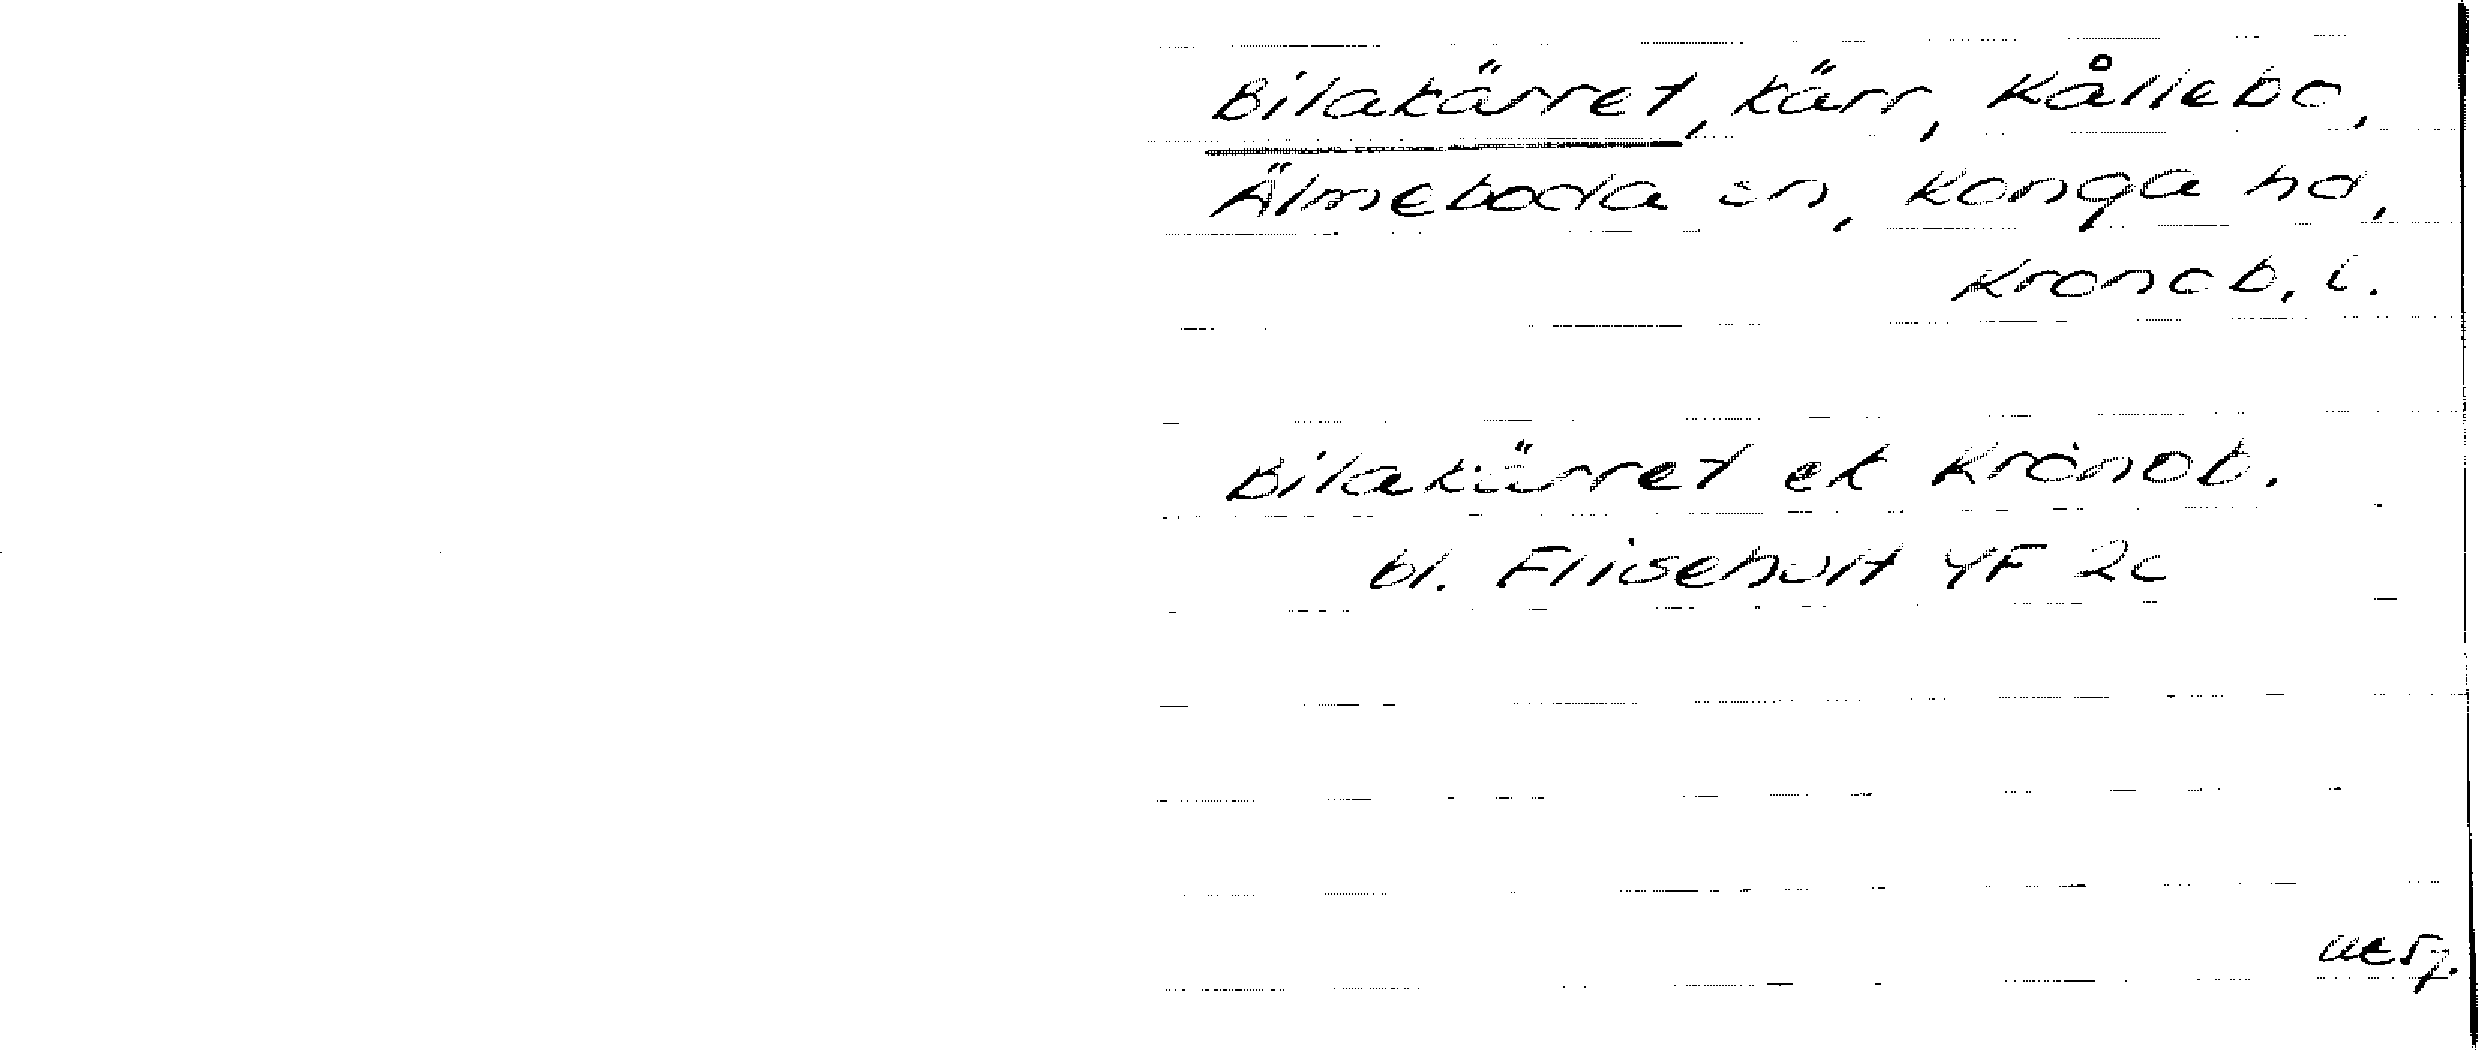 Bilakärret, kärr, Kållebo,
Älmeboda sn, Konga hd,
Kronob. l.
Bilakärret ek Kronob.
bl. Fliisehult 4F 2c